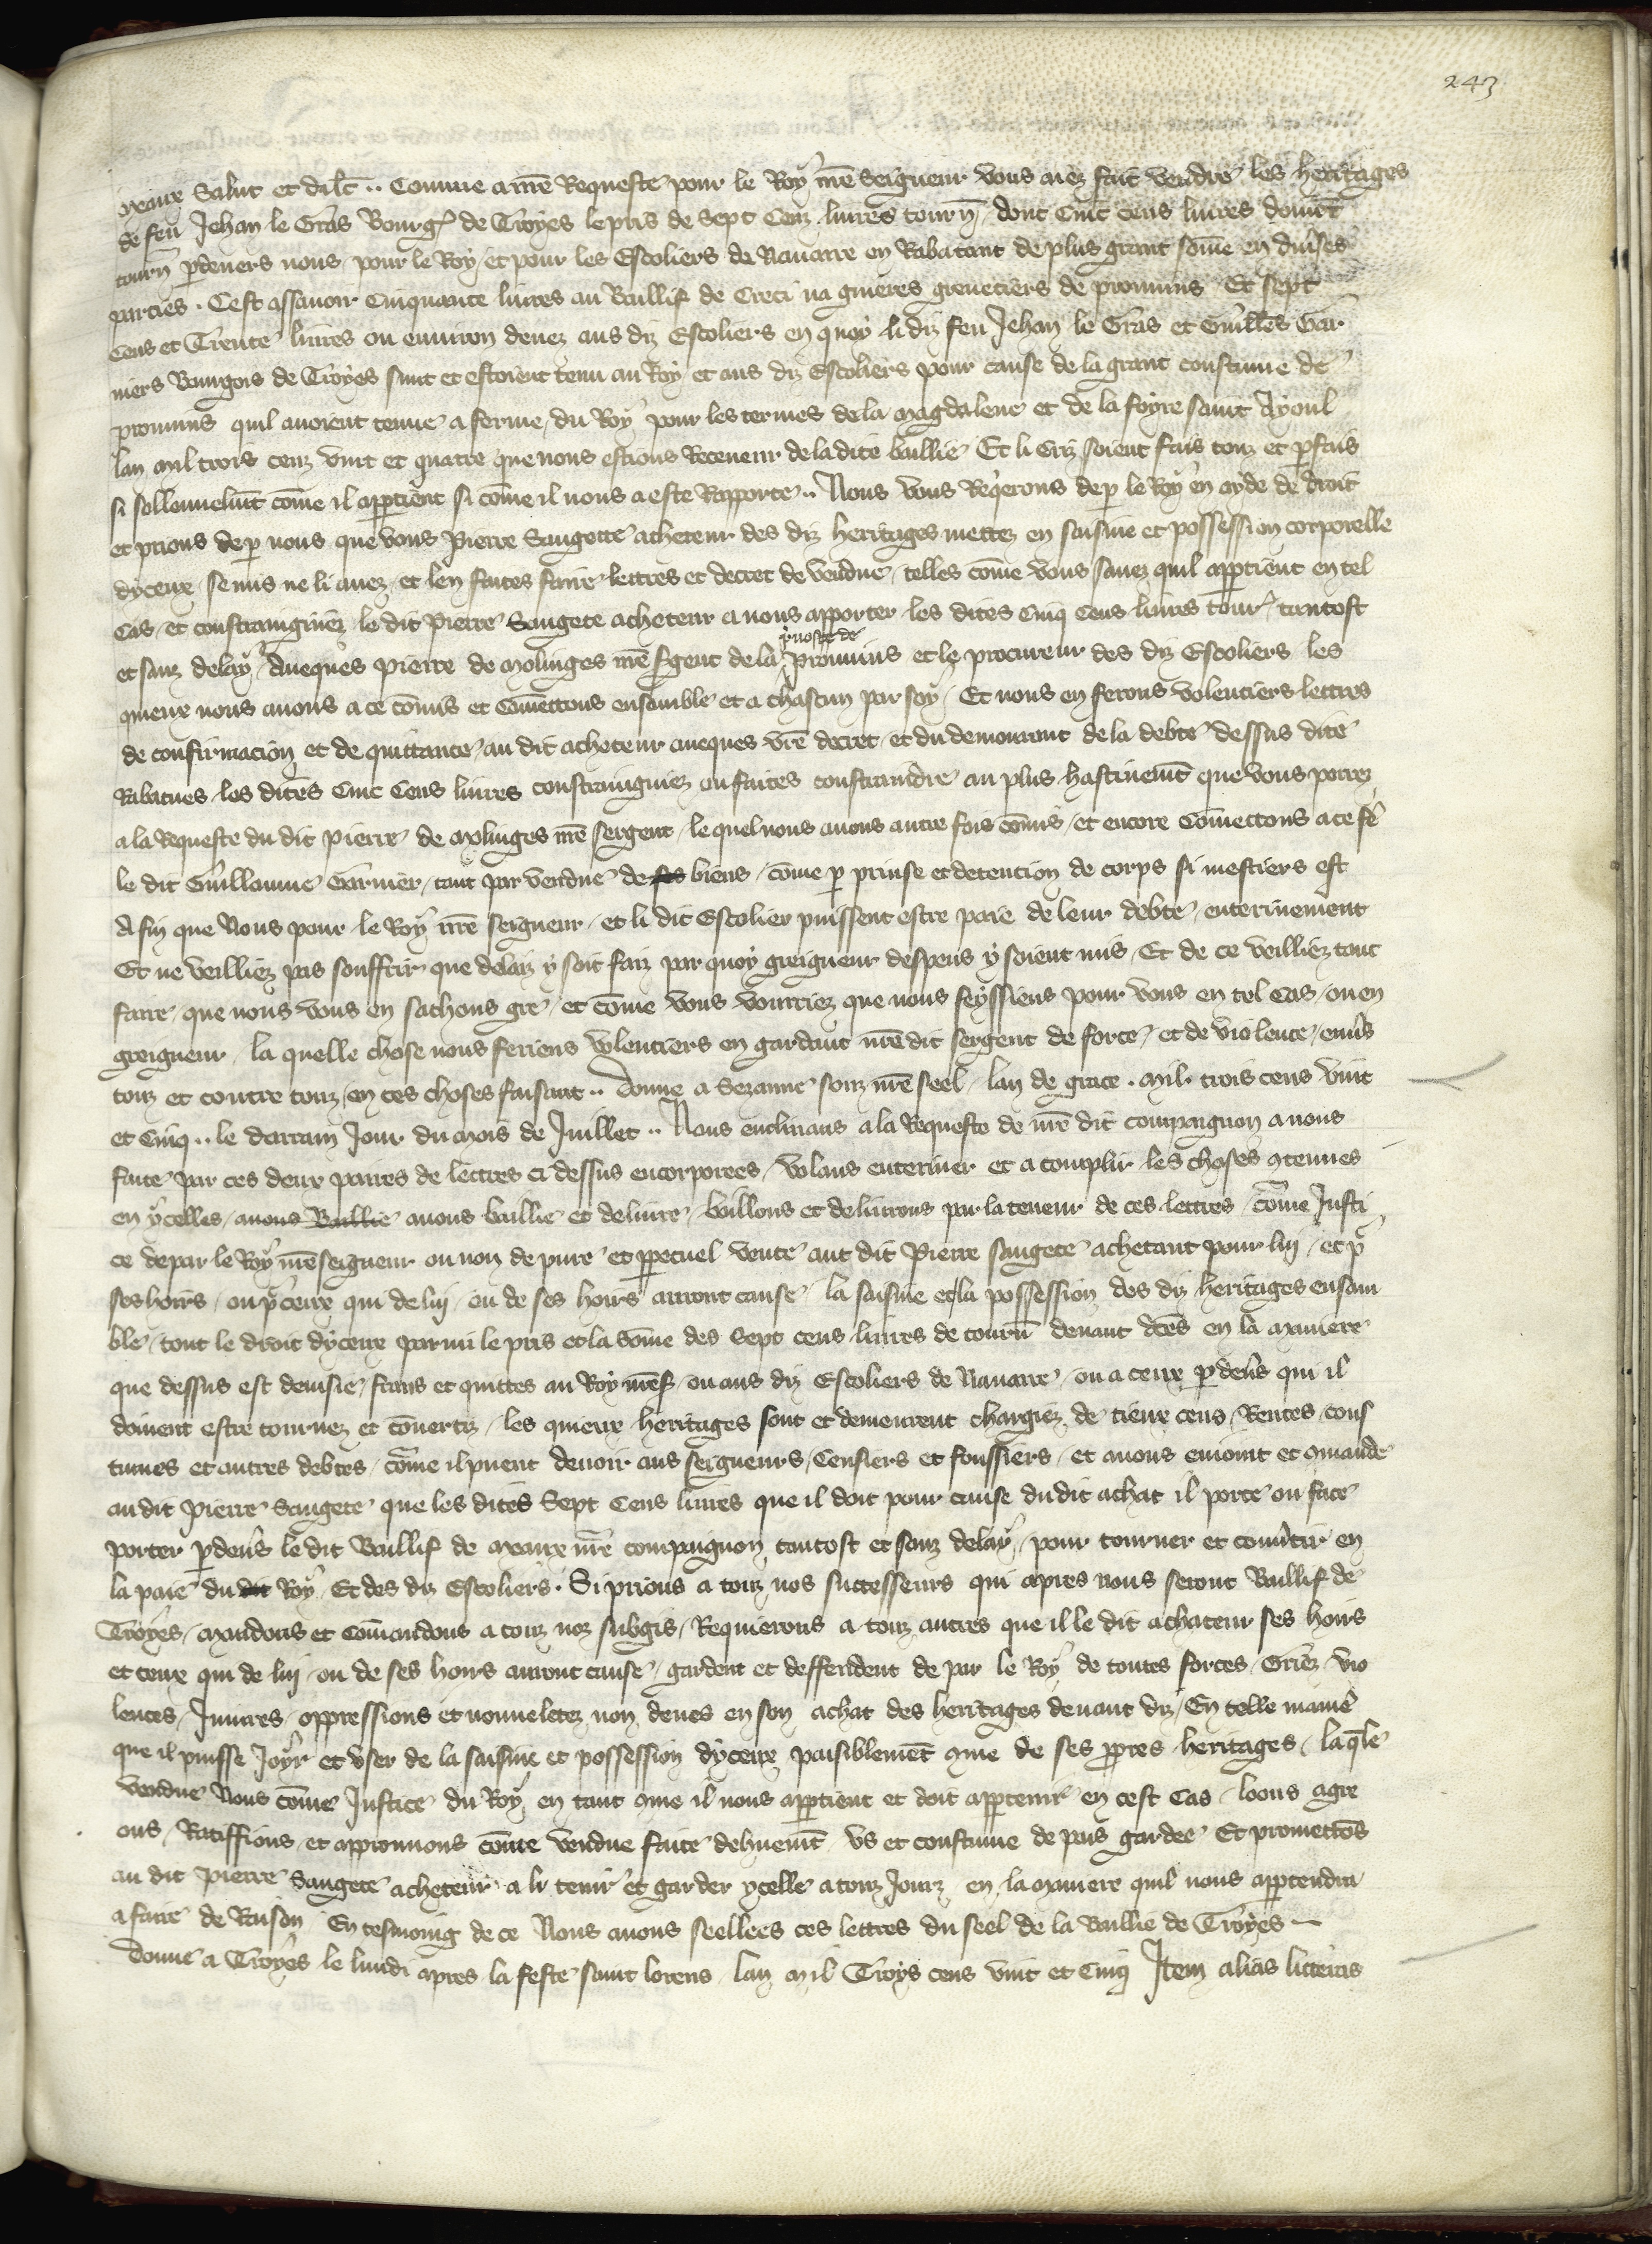 243
Meaux Salut et dilc̄. Comme a nr̄e Requeste pour le Roy nr̄e Seigneur vous aiez fait vendre les heritages
de feu Jehan le Gras Bourg̃ de Troyes le pris de Sept Cenz livres tourñ, dont Cinc cens livres doivēt
tourñ p̱devers nous pour le Roy, et pour les Escoliers de Navarre en Rabatant de plus grant sōme en div̄ses
parties. Cest assavoir Cinquante livres au Baillif de Creci na guieres grenetiers de provuins Et Sept
Cens et Trente livres ou environ devez aus diz Escoliers en quoy li diz feu Jehan le Gras et Guill̄es Gar
niers Bourgois de Troyes sunt et estoient tenu au Roy et aus diz Escoliers pour cause de la grant coustume de
provuins quil avoient tenue a ferme, du Roy pour les termes de la Magdalene et de la foyre saint Ayoul
lan mil trois cenz vint et quatre que nous estions Receveur de la dite baillie Et li criz soient fais touz et p̱fais
si sollennelmēt cōme il app̱tient si cōme il nous a este Rapporte. Nous vous Req̄erons de p̱ le Roy en ayde de droit
et prions de p̱ nous que vous Pierre Saugette acheteur des diz heritages mettez en saisine et possession corporelle
dyceux, se mis ne li avez, et len faites faire lettres et decret de vendue, telles cōme vous savez quil app̱tient en tel
Cas, et constraingniez le dit Pierre Saugete acheteur a nous apporter les dites Cinq Cens livres tour̃ tantost
et sanz delay, Aveques Pierre de Molinges nr̄e s̄gent de la p̱voste de Provuins et le procureur des diz Escoliers les
quieux nous avons a ce cōmis et Cōmettons ensamble et a chascun par soy, Et nous en ferons volentiers lettres
de confirmacion et de quittance au dit acheteur aveques vr̄e decret, et du demourant de la debte dessus dite
Rabatues les dites Cinc Cens livres constraingniez ou faites constraindre au plus hastivemēt que vous porrez
a la Requeste du dit Pierre de Molinges nr̄e sergent, le quel nous avons autre fois cōmis, et encore Cōmettons a ce f̄e
le dit Guillaume Garnier, tant par vendue de ses biens, cōme p̱ prinse et detencion de corps si mestiers est
Afin que Nous pour le Roy nr̄e seigneur, et li dit Escolier puissent estre paie de leur debte enterinement
Et ne veilliez pas souffrir que delaiz y soit faiz par quoy greigneur despens y soient mis, Et de ce veilliez tant
faire, que nous vous en sachons gre, et cōme vous vourriez que nous feyssiens pour vous en tel Cas, ou en
greigneur, la quelle chose nous feriens volentiers en gardant nr̄e dit sergent de force, et de violence, env̄s
touz et contre touz, en ces choses faisant. Donne a Sezanne souz nr̄e seel, lan de grace. Mil. trois cens vint
et Cinq.. le darrain Jour du mois de Juillet.. Nous enclinans a la Requeste de nr̄e dit compaignon a nous
faite par ces deux paires de lettres ci dessus encorporees, volans enteriner et acomplir les choses ɔtenues
en ycelles, avons Baillie avons baillie et delivre, baillons et delivrons par la teneur de ces lettres, cōme Justi
ce depar le Roy nr̄e seigneur ou non de pure et p̱petuel vente aut dit Pierre saugete achetant pour luy, et p̱
ses hoirs, ou p̱ ceux qui de luy, ou de ses hoirs auront cause la saisine et la possession des diz heritages ensam
ble, tout le droit dyceux parmi le pris et la sōme des Sept cens livres de tourñ devant dc̄es en la maniere
que dessus est devisie, frans et quittes au Roy nr̄es̃ ou aus diz Escoliers de Navarre, ou a ceux p̱dev̄s qui il
doivent estre tournez et cōvertiz, les quieux heritages sont et demeurent chargiez de tieux cens, Rentes, cous
tumes et autres debtes, cōme il puent devoir aus seigneurs, Censiers et foussiers, et avons enioint et ɔmande
au dit Pierre Saugete que les dites Sept Cens livres que il doit pour cause du dit achat il porte ou face
porter p̱dev̄s le dit Baillif de Meaux nr̄e compaignon tantost et sanz delay, pour tourner et conv̄tir en
la paie du dit Roy, Et des diz Escoliers. Si prions a touz nos successeurs qui apres nous seront Baillif de
Troyes, Mandons et Cōmandons a touz noz subgis, Requierons a touz autres que il le dit achateur ses hoirs
et ceux qui de luy ou de ses hoirs auront cause, gardent et deffendent de par le Roy de toutes forces, Griez, vio
lences, Iniures, oppressions et nouveletez non deues en son achat des heritages devant diz, En telle manie
que il puisse Joyr et user de la saisine et possession dyceux paisiblemēt ɔme de ses p̱pres heritages, laq̄le
vendue Nous cōme Justice du Roy, en tant ɔme il nous app̱tient et doit app̱tenir en cest Cas, loons agre
ons, Ratiffions, et approuvons cōme vendue faite dehuemēt us et coustume de pais gardee Et promettōs
au dit Pierre Saugete acheteur a li tenir et garder ycelle a touz Jourz en la maniere quil nous app̱tendra
a faire de Raison En tesmoing de ce Nous avons seellees ces lettres du seel de la Baillie de Troyes
Donne a Troyes le lundi apres la feste saint lorens lan Mil Troys cens vint et Cinq Item alias litteras